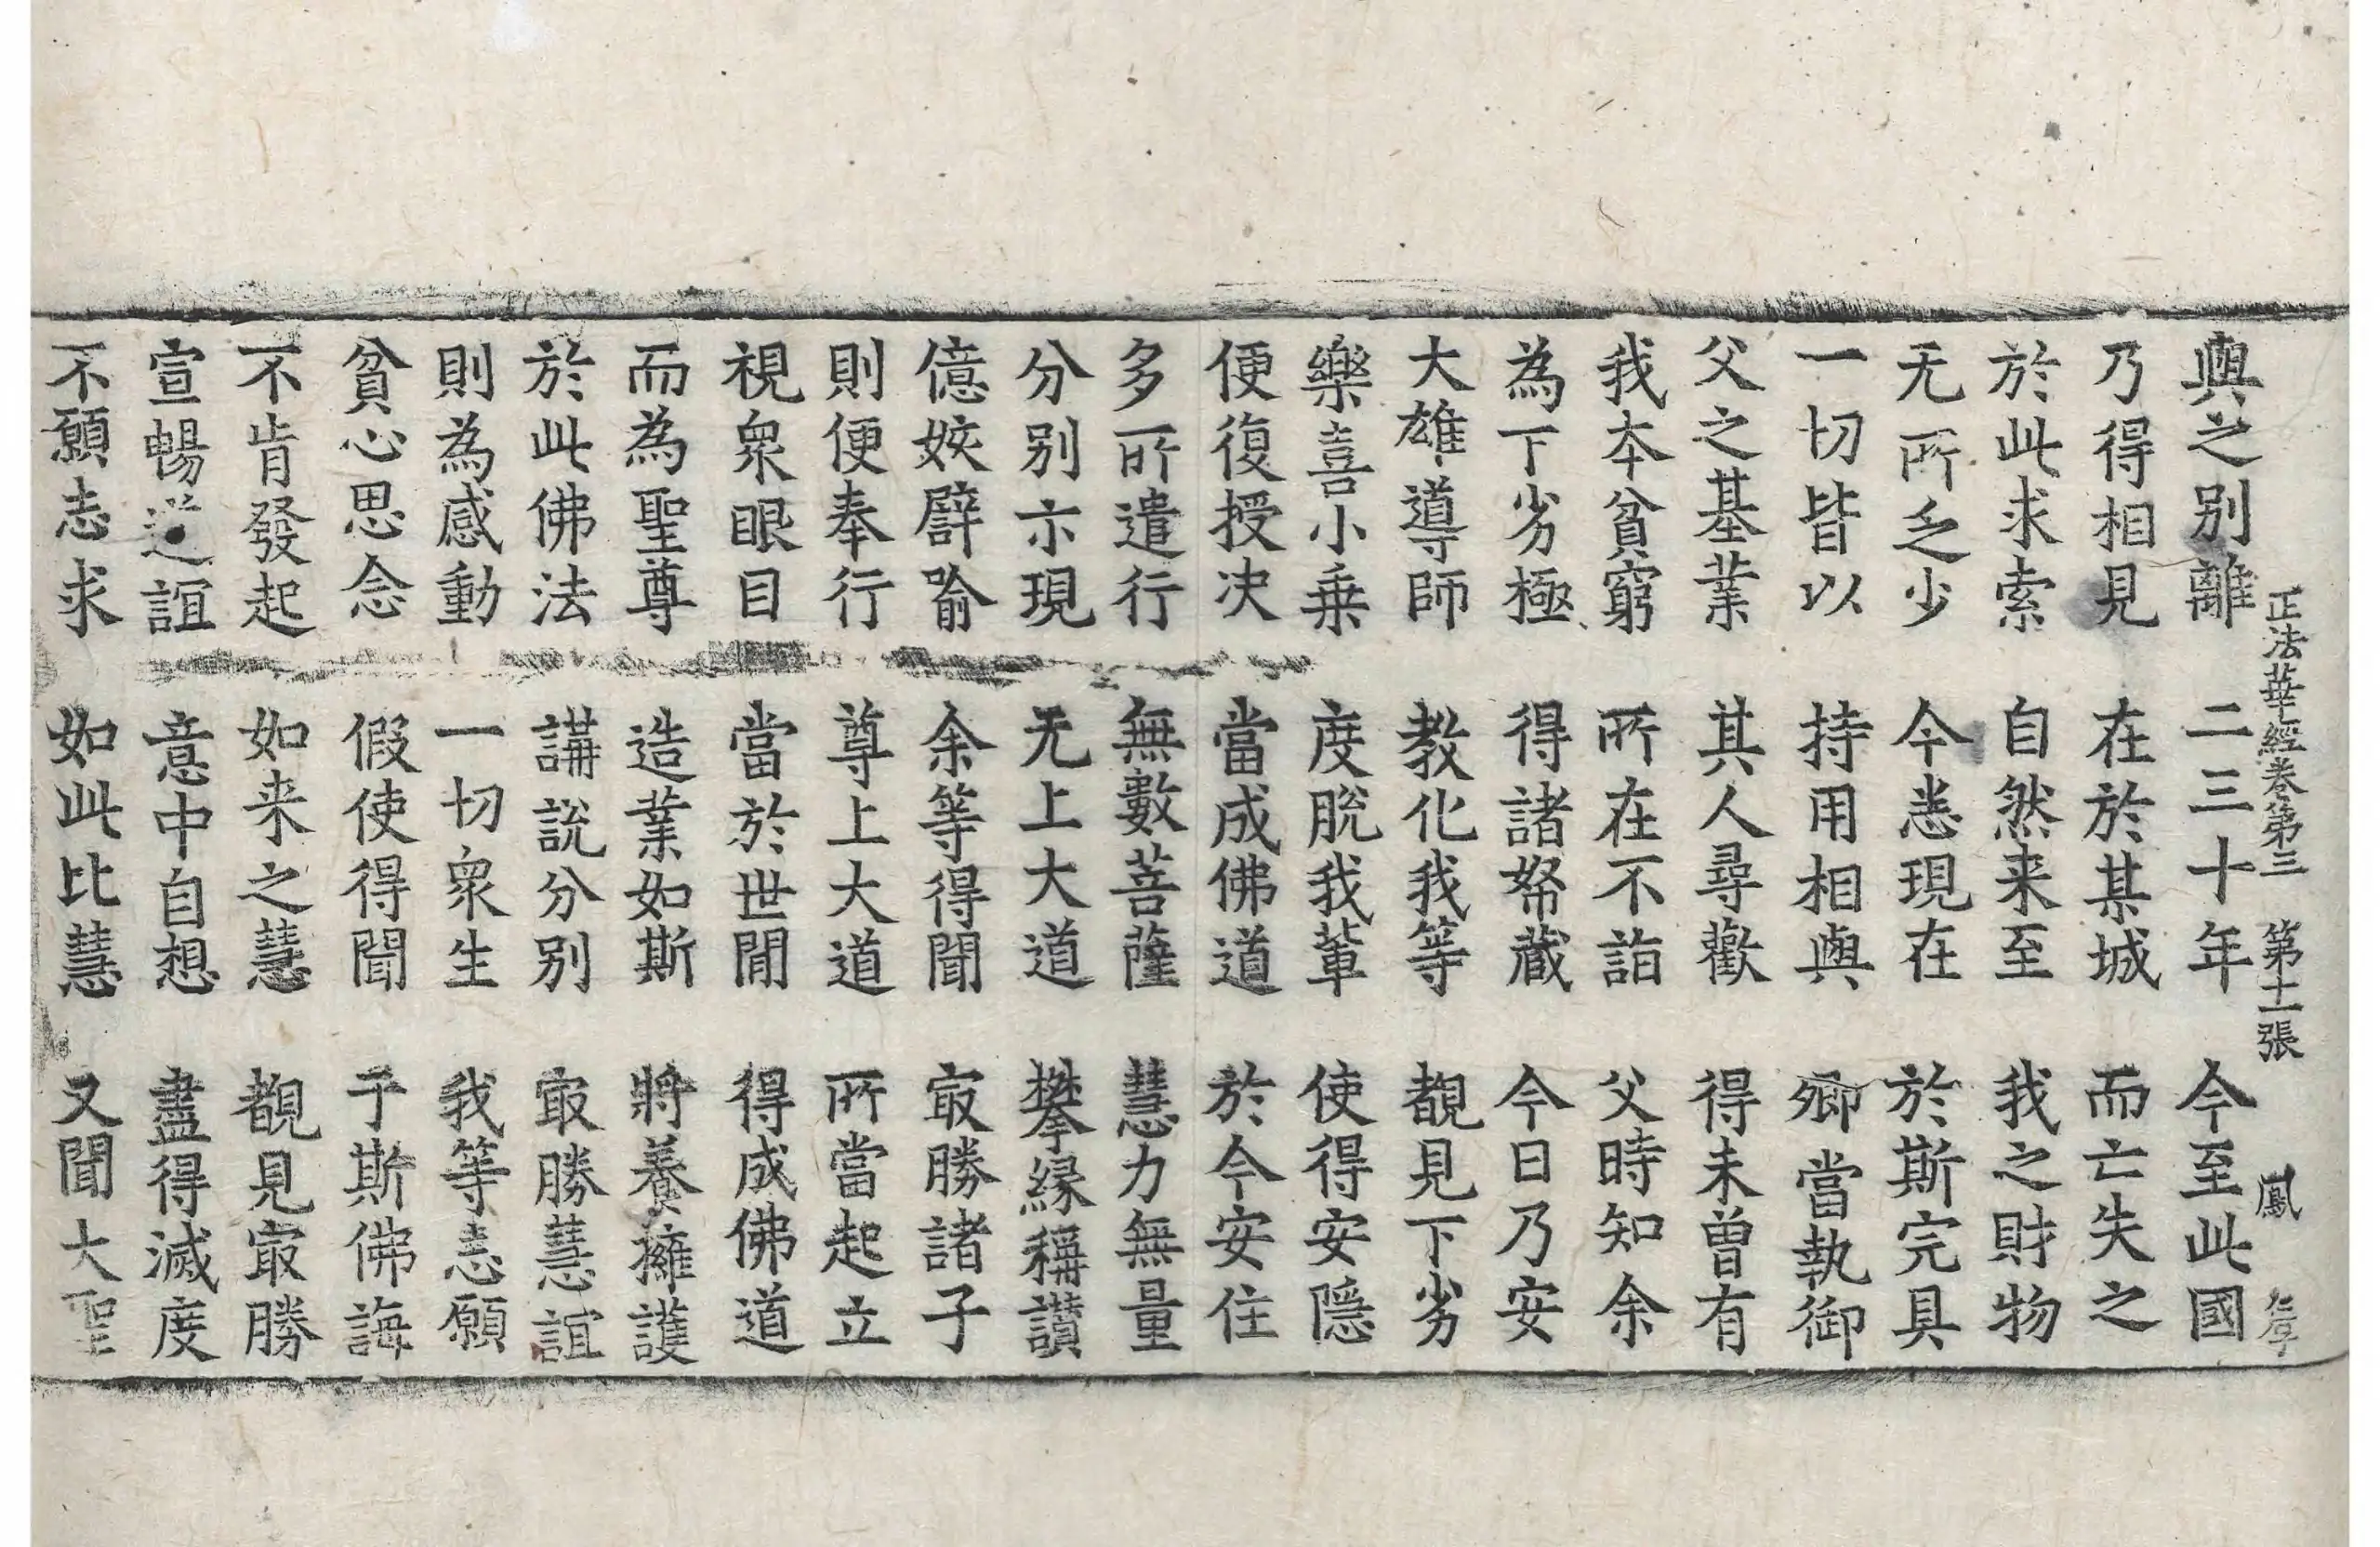 正法華經卷第三 第十一張 鳳
與之別離 二三十年 今至此國
乃得相見 在於某城 而亡失之
於此求索 自然来至 我之財物
无所乏少 今悉現在 於斯完具
一切皆以 持用相與 卿當執御
父之基業 其人尋歡 得未曽有
我本貧窮 所在不詣 父時知余
為下劣極 得諸帑藏 今日乃安
大雄導師 教化我等 覩見下劣
樂喜小乗 度脫我輩 使得安隱
便復授决 當成佛道 於今安住
多所遣行 無數菩薩 慧力無量
分別示現 无上大道 攀緣稱讃
億姟譬喻 余等得聞 㝡勝諸子
則便奉行 尊上大道 所當起立
視衆眼目 當於世間 得成佛道
而為聖尊 造業如斯 將養擁護
於此佛法 講說分別 㝡勝慧誼
則為感動 一切衆生 我等志願
貧心思念 假使得聞 于斯佛誨
不肯發起 如来之慧 覩見㝡勝
宣暢道誼 意中自想 盡得滅度
不願志求 如此比慧 又聞大聖